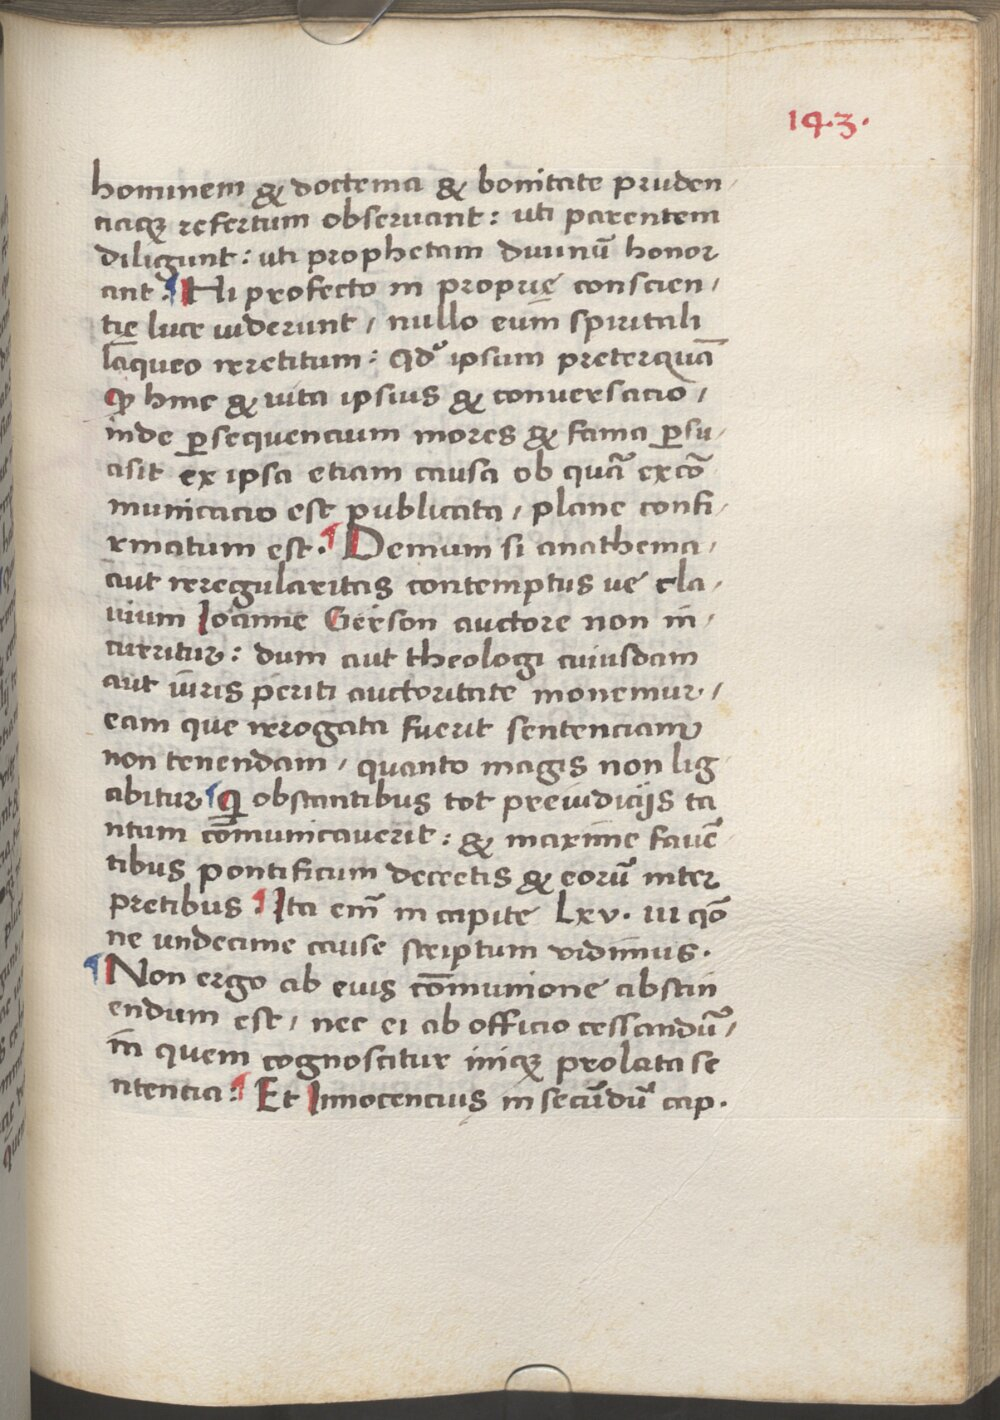 143.
hominem & doctrina & bonitate pruden,
ciaqꝫ refertum obseruant: uti parentem
diligunt: uti prophetam diuinū honor
ant. ¶ Hi profecto in proprie conscien,
tie luce uiderunt, nullo eum spiritali
laqueo irretitum: Qđ ipsum preterquā
ꝙ hinc & uita ipsius & conuersacio,
inde ꝑsequencium mores & fama ꝑsu,
asit ex ipsa etiam causa ob quā excō
municacio est publicata, plane confi,
rmatum est. ¶ Demum si anathema,
aut irregularitas contemptus ue cla,
uium Ioanne Gerson auctore non in,
curritur: dum aut theologi cuiusdam
aut iuris periti auctoritate monemur,
eam que irrogata fuerit sentenciam
non tenendam, quanto magis non lig
abitur ¶ obstantibus tot preiudicijs ta
ntum cōmunicauerit: & maxime fauē
tibus pontificum decretis & eorū inter
pretibus ¶ Ita em̄ in capite Lxv. iii qō
ne undecime cause scriptum vidimus.
¶ Non ergo ab eius cōmunione abstin
endum est, nec ei ab officio cessandū,
in quem cognoscitur iniqꝫ prolata se
ntencia: ¶ Et Innocencius in secūdū cap.